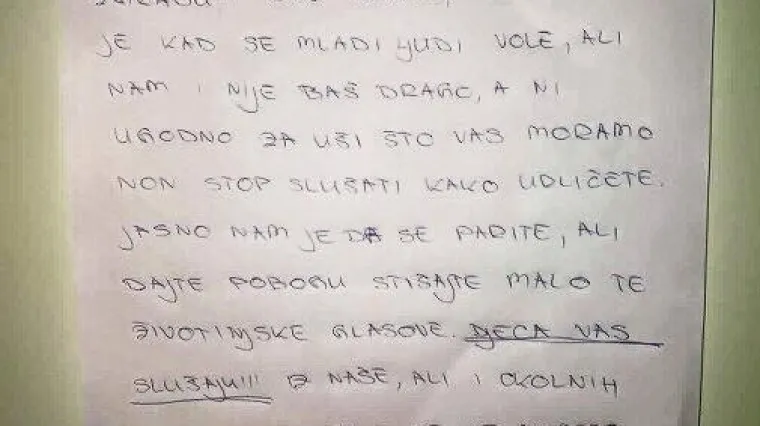 JE KAD SE MLADI LJUDI VOLE, ALI
NAM I NIJE BAŠ DRAGO, A NI
UGODNO ZA UŠI ŠTO VAS MORAMO
NON STOP SLUŠATI KAKO UDLIČETE.
JASNO NAM JE DA SE PARITE, ALI
DAJTE POBOGU STIŠAJTE MALO TE
ŽIVOTINJSKE GLASOVE. DJECA VAS
SLUŠAJU!!! IZ NAŠE, ALI I OKOLNIH